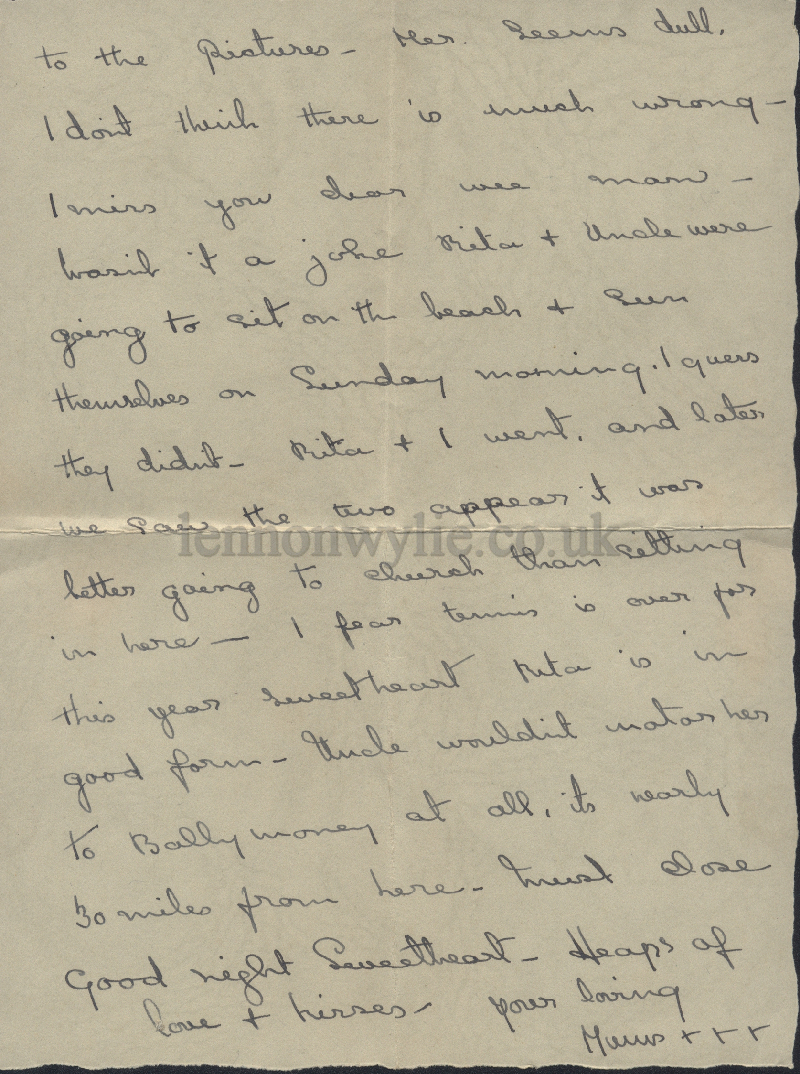 to the Pictures - Mer. Seems dull.
I dont think there is much wrong -
I miss you dear wee man -
Wasn't it a joke Rita + Uncle were
going to sit on the beach + Sun
themselves on Sunday morning. I guess
they didn't - Rita + I went. and later
we saw the two appear it was
lennonwylie.co.uk
better going to church than sitting
in here - I fear tennis is over for
this year sweetheart Rita is in
good form - Uncle wouldn't motor her
to Ballymoney at all, its nearly
30 miles from here - Must close
Good night Sweetheart - Heaps of
love + kisses - your loving
Mums + + +